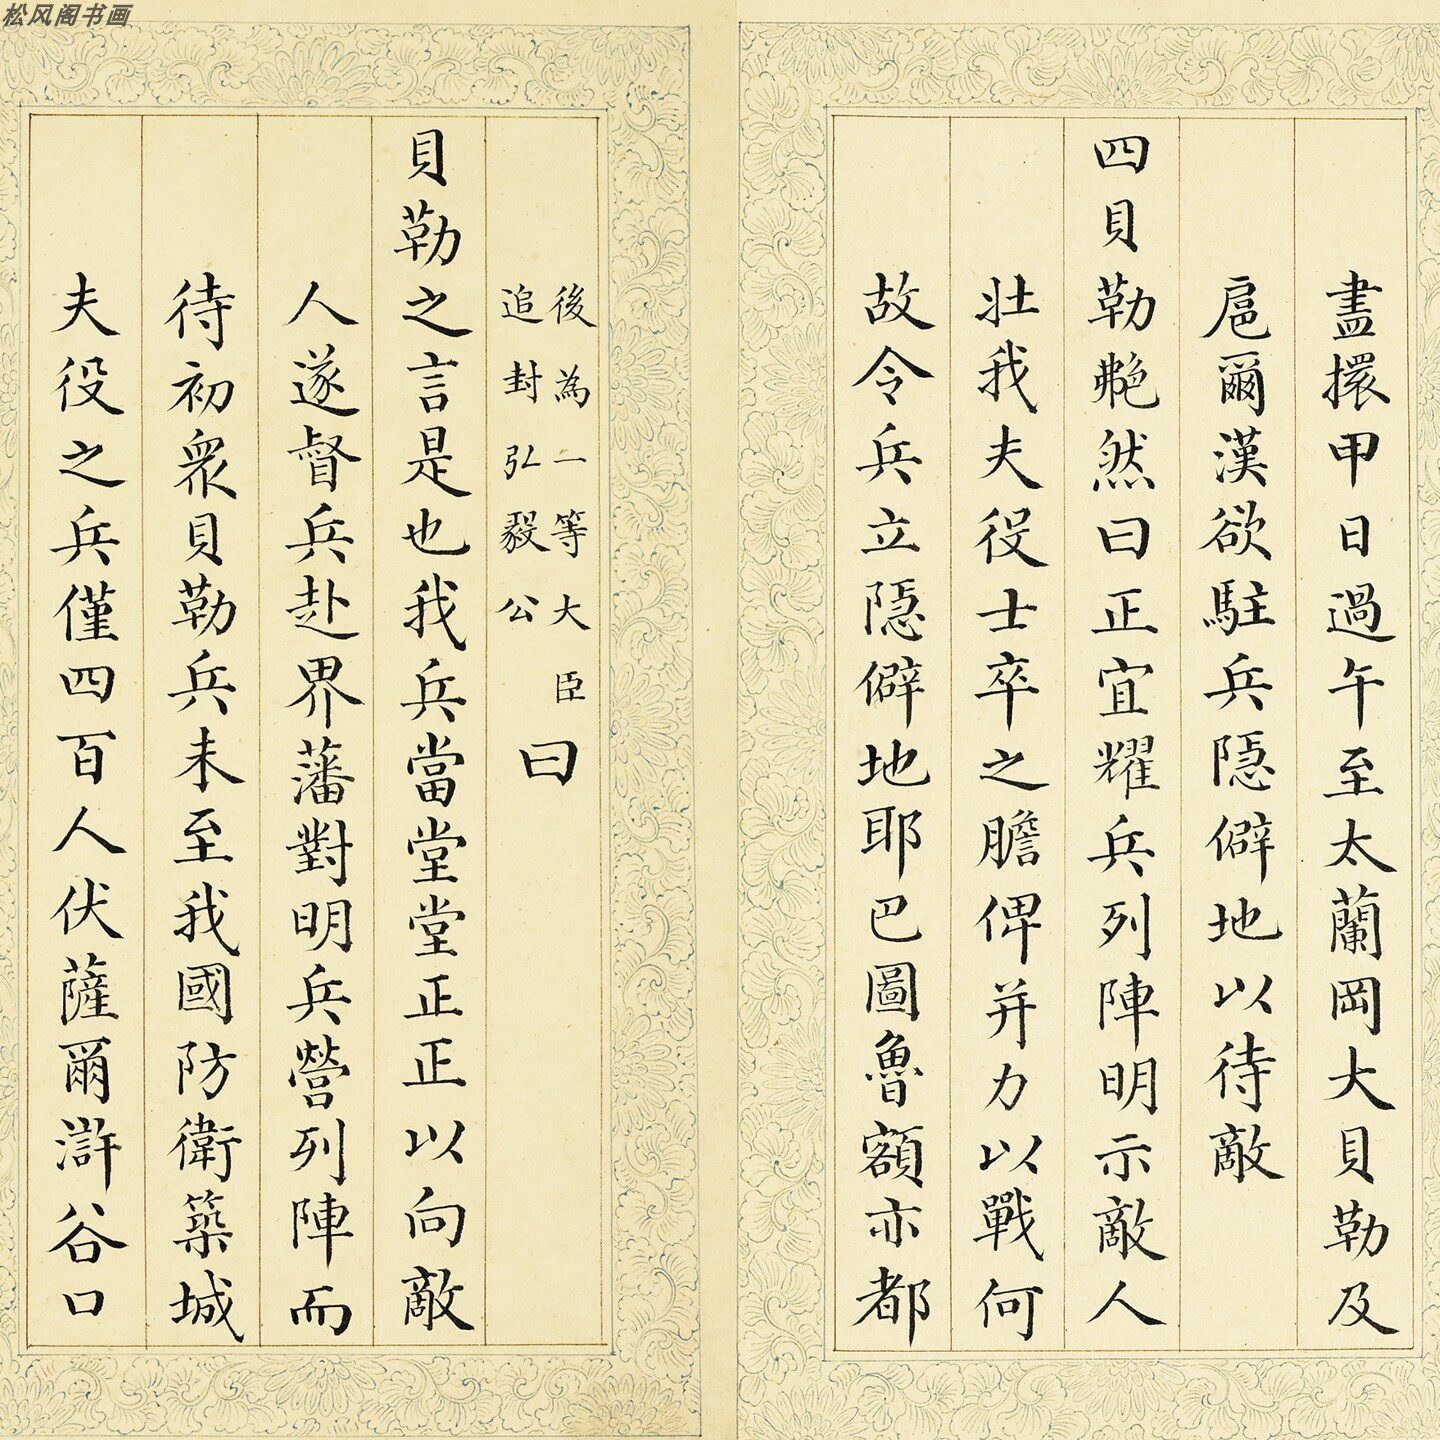 松风阁书画
盡擐甲日過午至太蘭岡大貝勒及
扈爾漢欲駐兵隱僻地以待敵
四貝勒艴然曰正宜耀兵列陣明示敵人
壯我夫役士卒之膽俾并力以戰何
故令兵立隱僻地耶巴圖魯額亦都
後為一等大臣
追封弘毅公
曰
貝勒之言是也我兵當堂堂正正以向敵
人遂督兵赴界藩對明兵營列陣而
待初衆貝勒兵未至我國防衛築城
夫役之兵僅四百人伏薩爾滸谷口